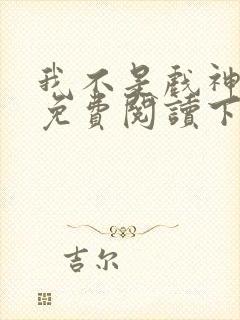 我不是戲神
免費閱讀下
吉尔